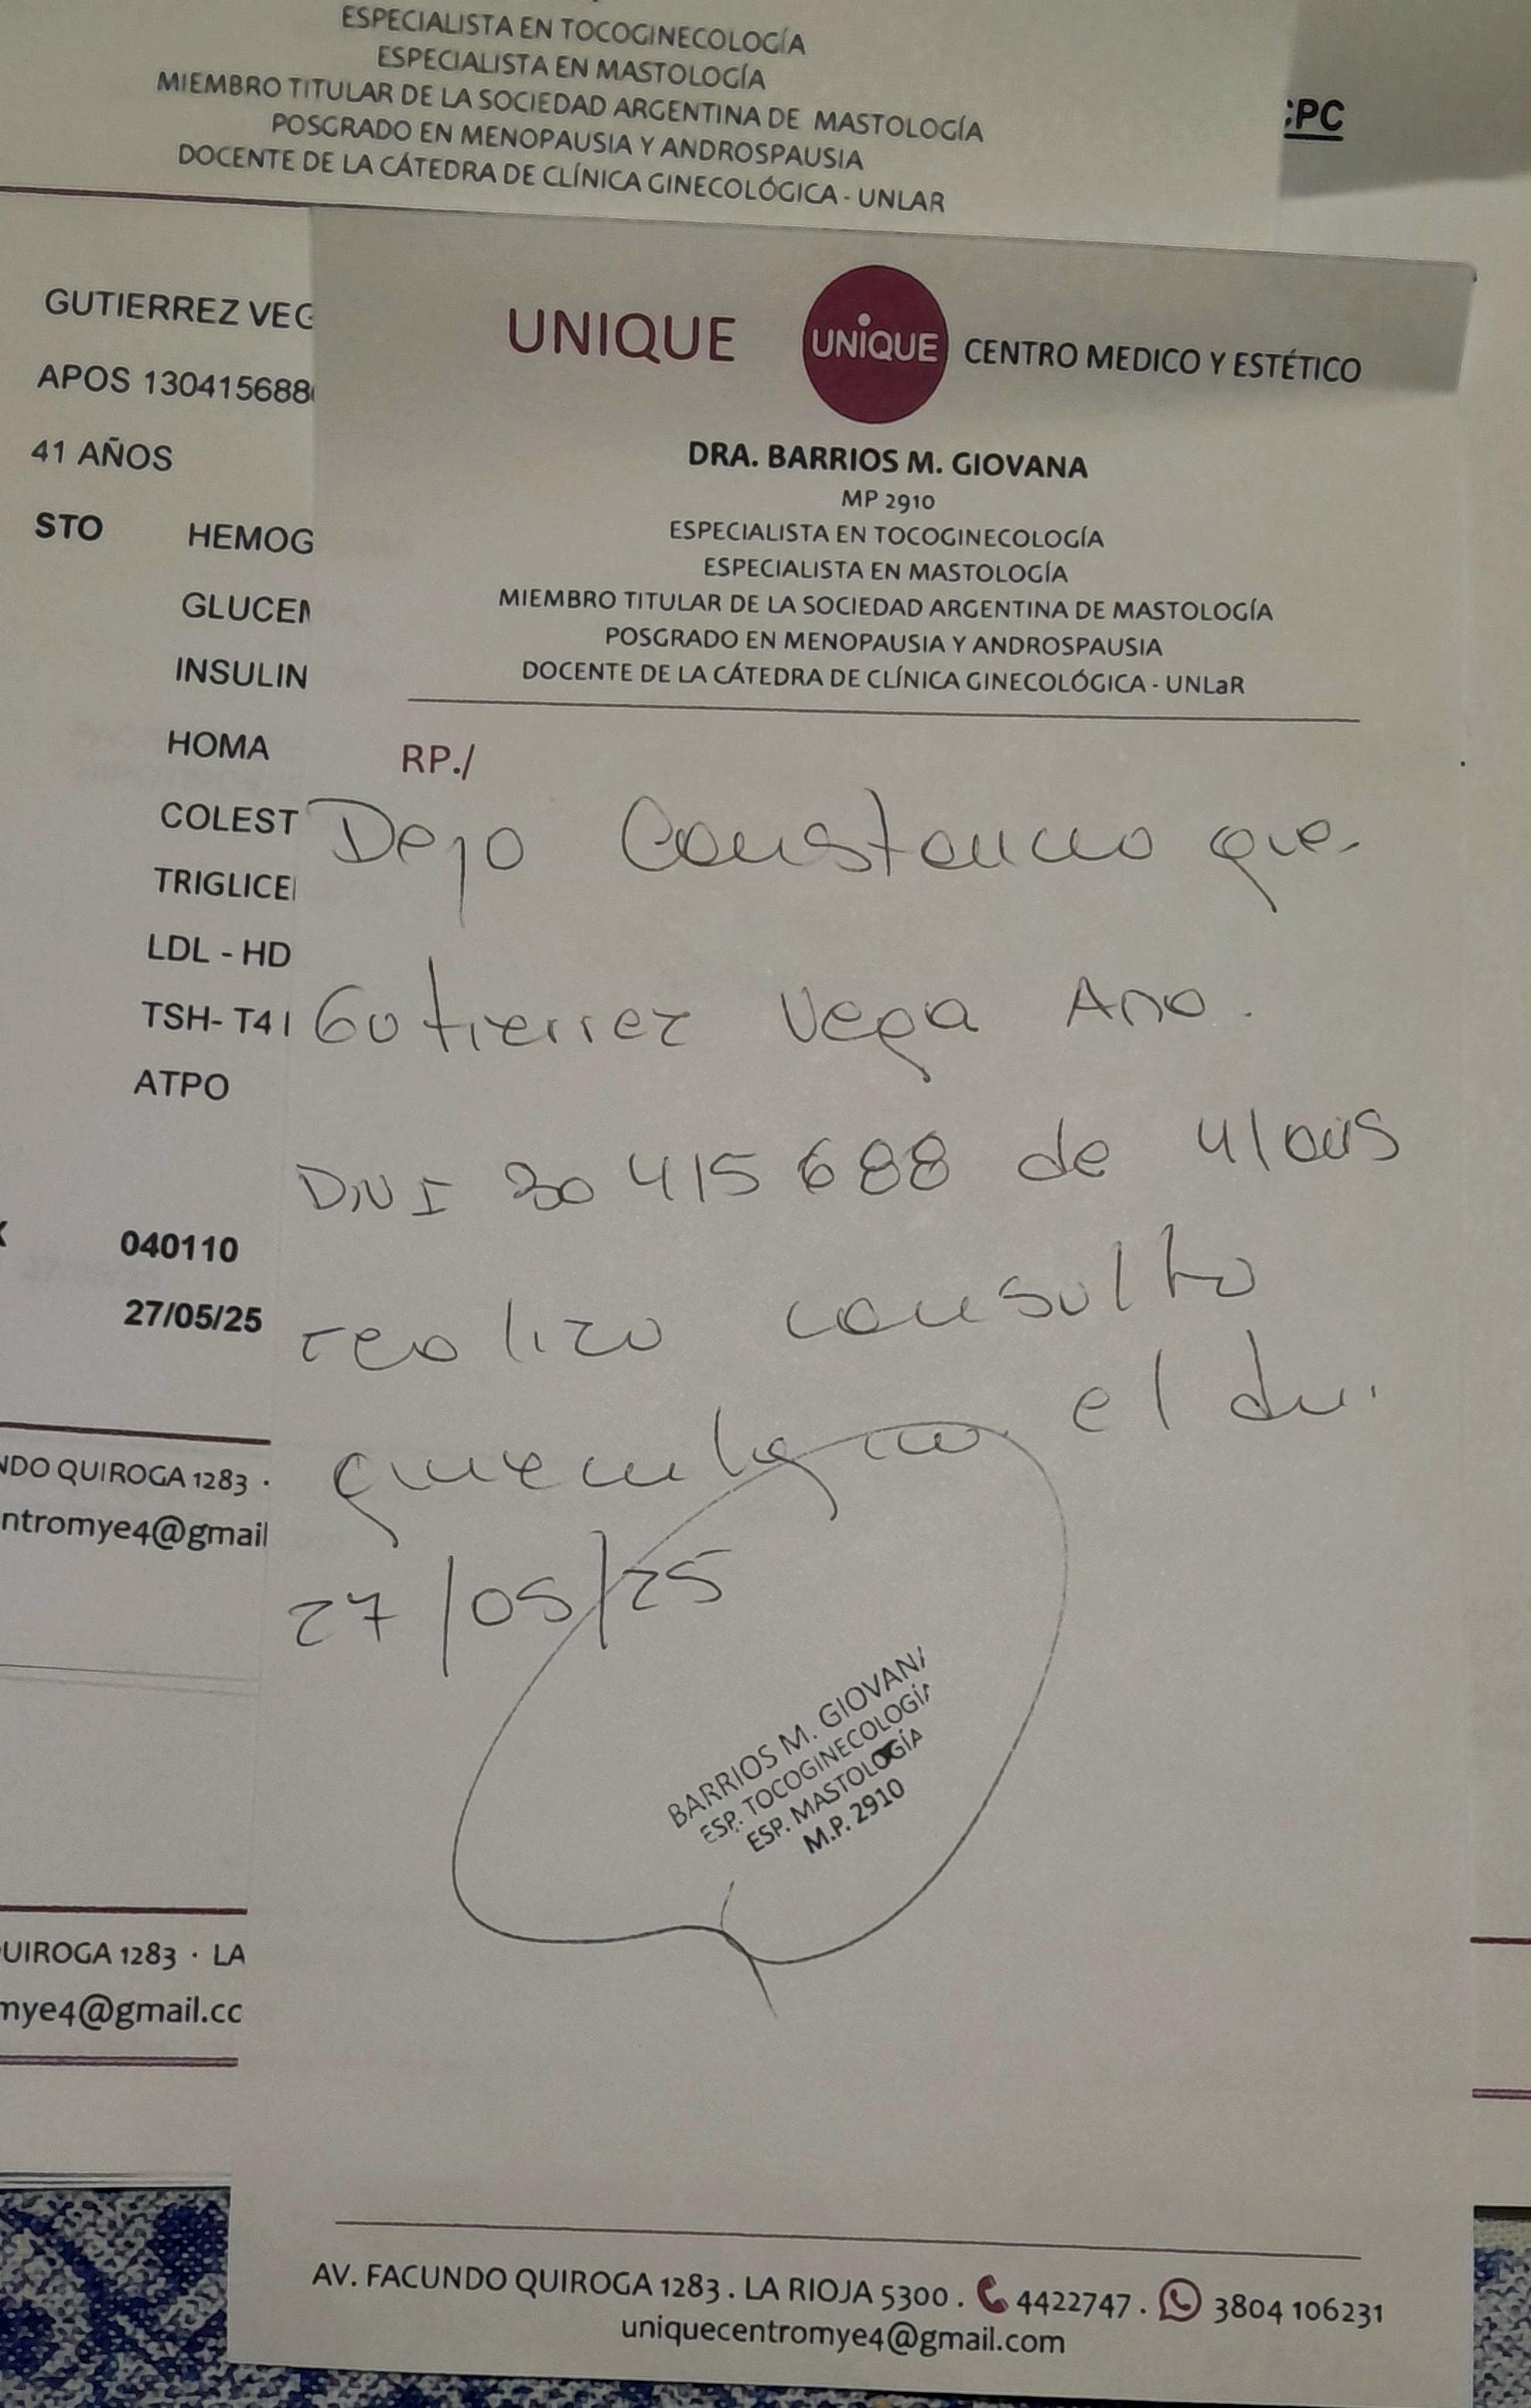 ESPECIALISTA EN TOCOGINECOLOGÍA
ESPECIALISTA EN MASTOLOGÍA
MIEMBRO TITULAR DE LA SOCIEDAD ARGENTINA DE MASTOLOGÍA
POSGRADO EN MENOPAUSIA Y ANDROSPAUSIA
DOCENTE DE LA CÁTEDRA DE CLÍNICA GINECOLÓGICA - UNLAR
CPC
GUTIERREZ VEG
APOS 130415688
41 AÑOS
STO HEMOG
GLUCEM
INSULIN
HOMA
COLEST
TRIGLICE
LDL - HD
TSH- T4 l
ATPO
040110
27/05/25
NDO QUIROGA 1283 ·
ntromye4@gmail
UIROGA 1283 · LA
mye4@gmail.cc
UNIQUE UNIQUE CENTRO MEDICO Y ESTÉTICO
DRA. BARRIOS M. GIOVANA
MP 2910
ESPECIALISTA EN TOCOGINECOLOGÍA
ESPECIALISTA EN MASTOLOGÍA
MIEMBRO TITULAR DE LA SOCIEDAD ARGENTINA DE MASTOLOGÍA
POSGRADO EN MENOPAUSIA Y ANDROSPAUSIA
DOCENTE DE LA CÁTEDRA DE CLÍNICA GINECOLÓGICA - UNLaR
RP./
Dejo Constancia que
Gutierrez Vega Ana.
DNI 30 415 688 de 41 años
realizo consulta
el dia
27/05/25
BARRIOS M. GIOVANA
ESP. TOCOGINECOLOGÍA
ESP. MASTOLOGÍA
M.P. 2910
AV. FACUNDO QUIROGA 1283 . LA RIOJA 5300 . 4422747 . 3804 106231
uniquecentromye4@gmail.com